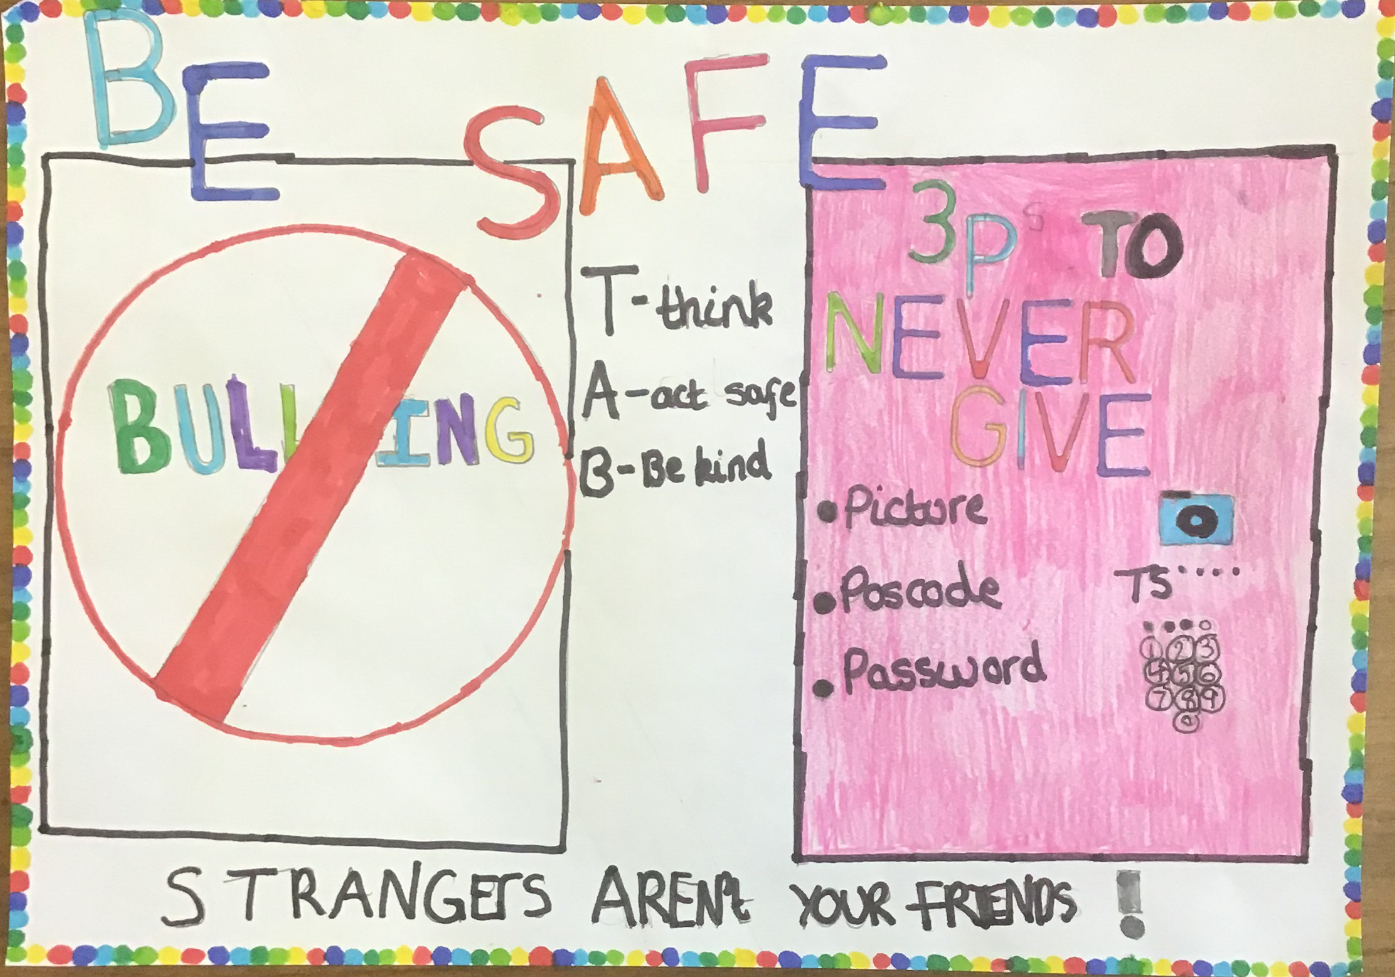 BE SAFE
BULLYING
T-think
A-act safe
B-Be kind
3Ps TO
NEVER
GIVE
•Picture
•Poscode
TS····
•Password
1 2 3
4 5 6
7 8 9
0
STRANGErS AREN't YOUR FRIENDS!